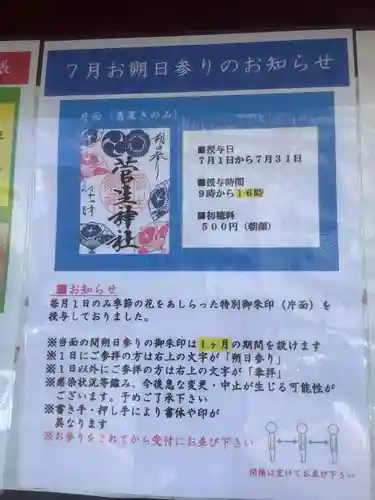 7月お朔日参りのお知らせ
片面(書置きのみ)
朔日参り
菅生神社
■授与日
7月1日から7月31日
■授与時間
9時から16時
■初穂料
500円(朝顔)
■お知らせ
毎月1日のみ季節の花をあしらった特別御朱印(片面)を
授与しておりました。
※当面の間朔日参りの御朱印は1ヶ月の期間を設けます
※1日にご参拝の方は右上の文字が「朔日参り」
※1日以外にご参拝の方は右上の文字が「奉拝」
※感染状況等鑑み、今後急な変更・中止が生じる可能性が
ございます。予めご了承下さい
※書き手・押し手により書体や印が
異なります
※お参りをされてから受付にお並び下さい
間隔は空けてお並び下さい